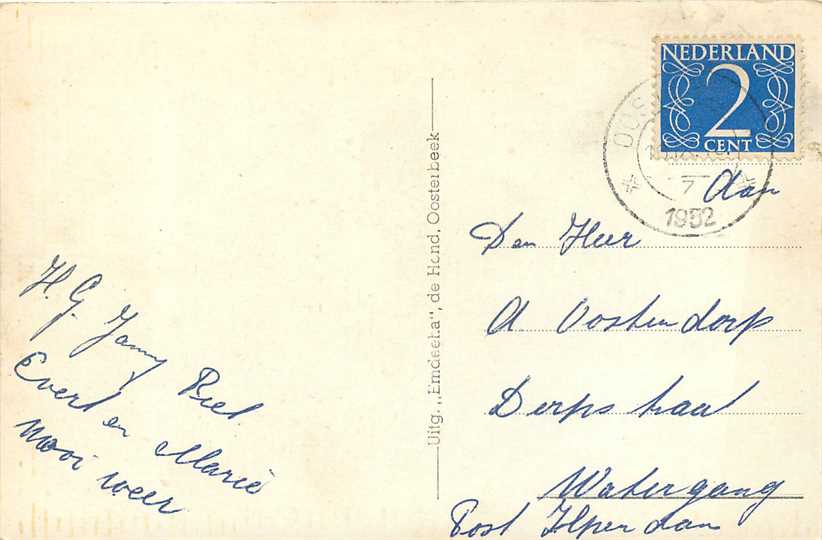 NEDERLAND
2
CENT
OOS
7
1952
Aan
Den Heer
A Oostendorp
Dorpstraat
Watergang
Post Ilpendam
Uitg. „Emdeeha", de Hond, Oosterbeek
H. G. Jamy Piet
Evert en Marie
Mooi weer